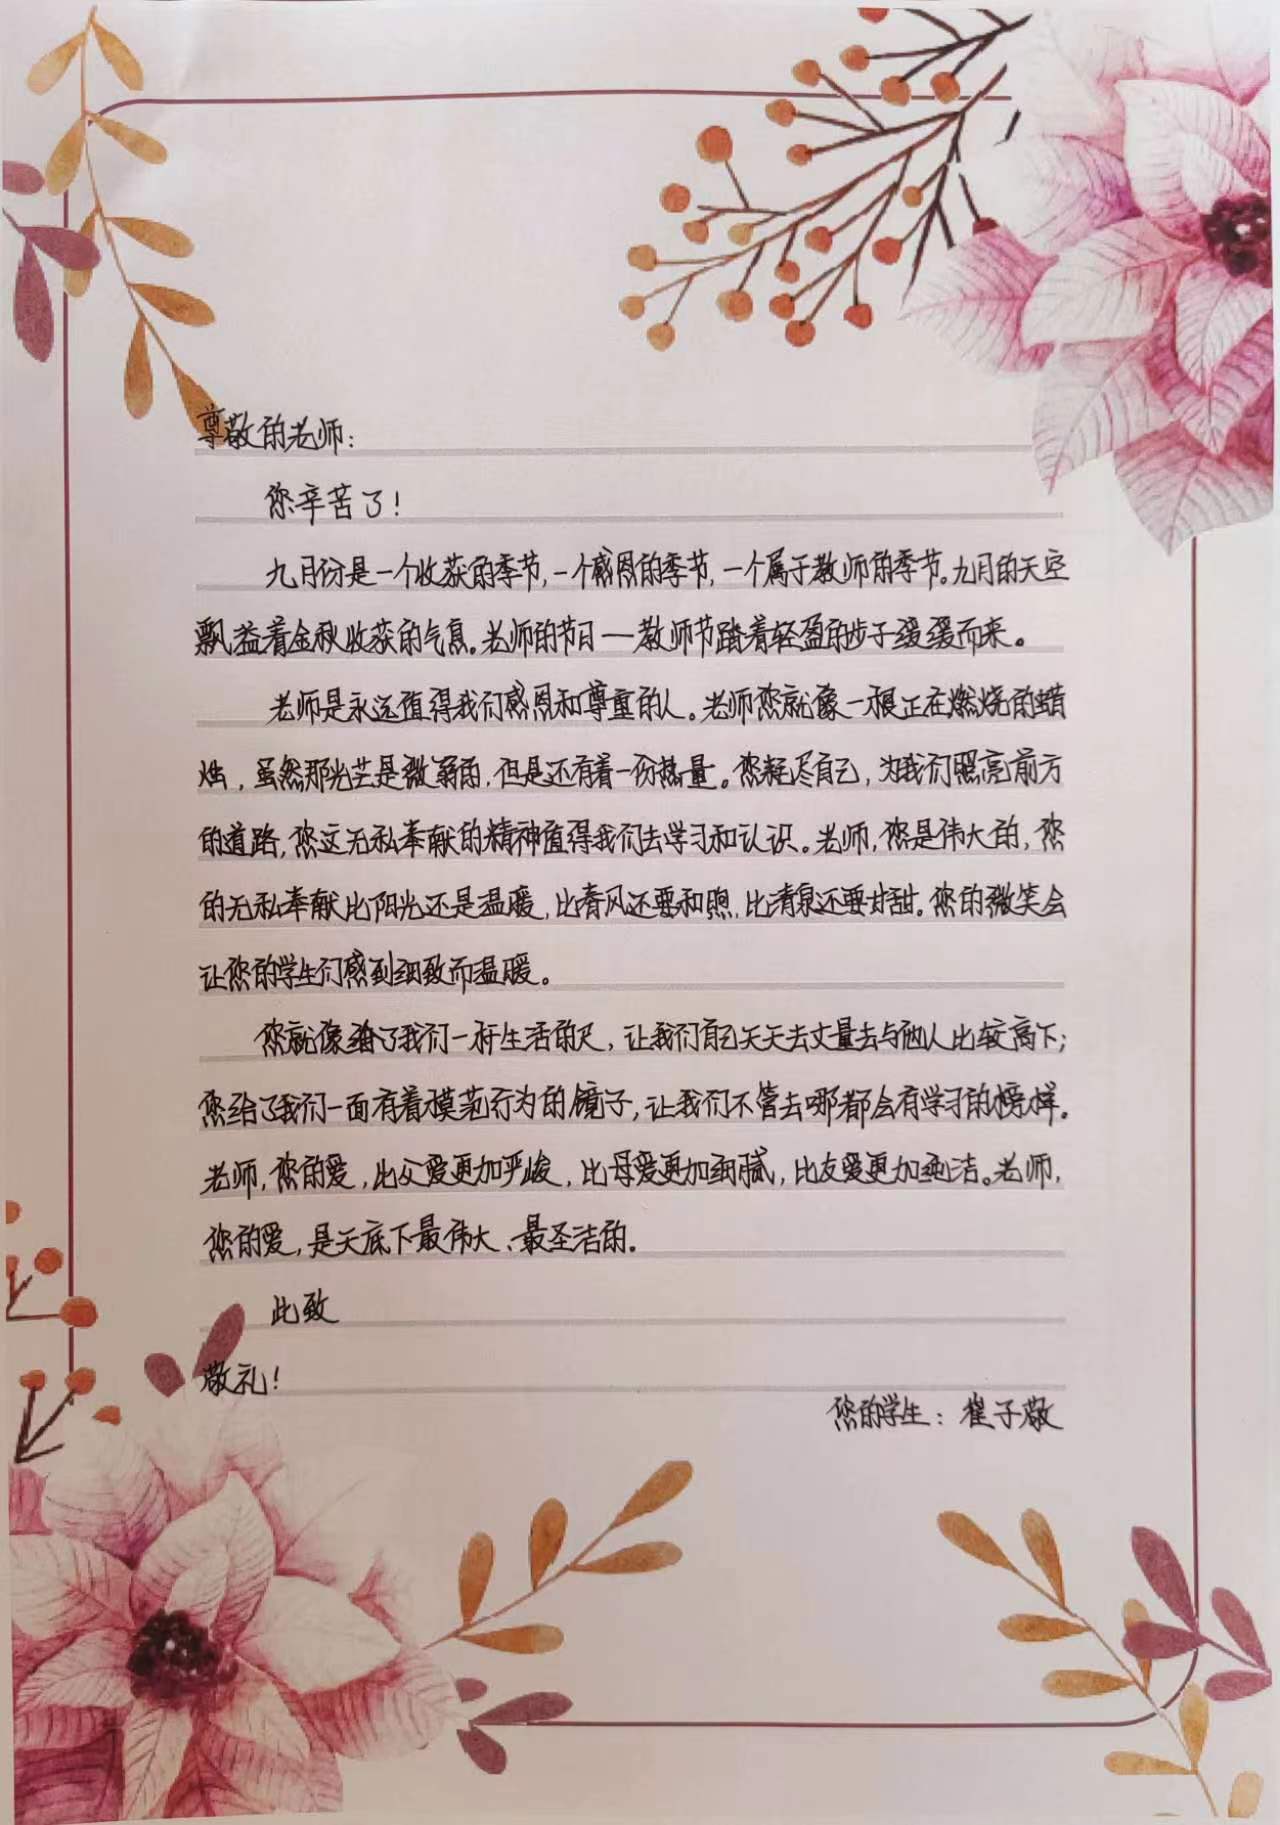 尊敬的老师：
您辛苦了！
九月份是一个收获的季节，一个感恩的季节，一个属于教师的季节。九月的天空
飘溢着金秋收获的气息。老师的节日—教师节踏着轻盈的步子缓缓而来。
老师是永远值得我们感恩和尊重的人。老师您就像一根正在燃烧的蜡
烛，虽然那光芒是微弱的，但是还有着一份热量。您耗尽自己，为我们照亮前方
的道路，您这无私奉献的精神值得我们去学习和认识。老师，您是伟大的，您
的无私奉献比阳光还是温暖，比春风还要和煦，比清泉还要甘甜。您的微笑会
让您的学生们感到细致而温暖。
您就像给了我们一杆生活的尺，让我们自己天天去丈量去与他人比较高下；
您给了我们一面有着模范行为的镜子，让我们不管去哪都会有学习的榜样。
老师，您的爱，比父爱更加严峻，比母爱更加细腻，比友爱更加纯洁。老师，
您的爱，是天底下最伟大、最圣洁的。
此致
敬礼！
您的学生：崔子敬